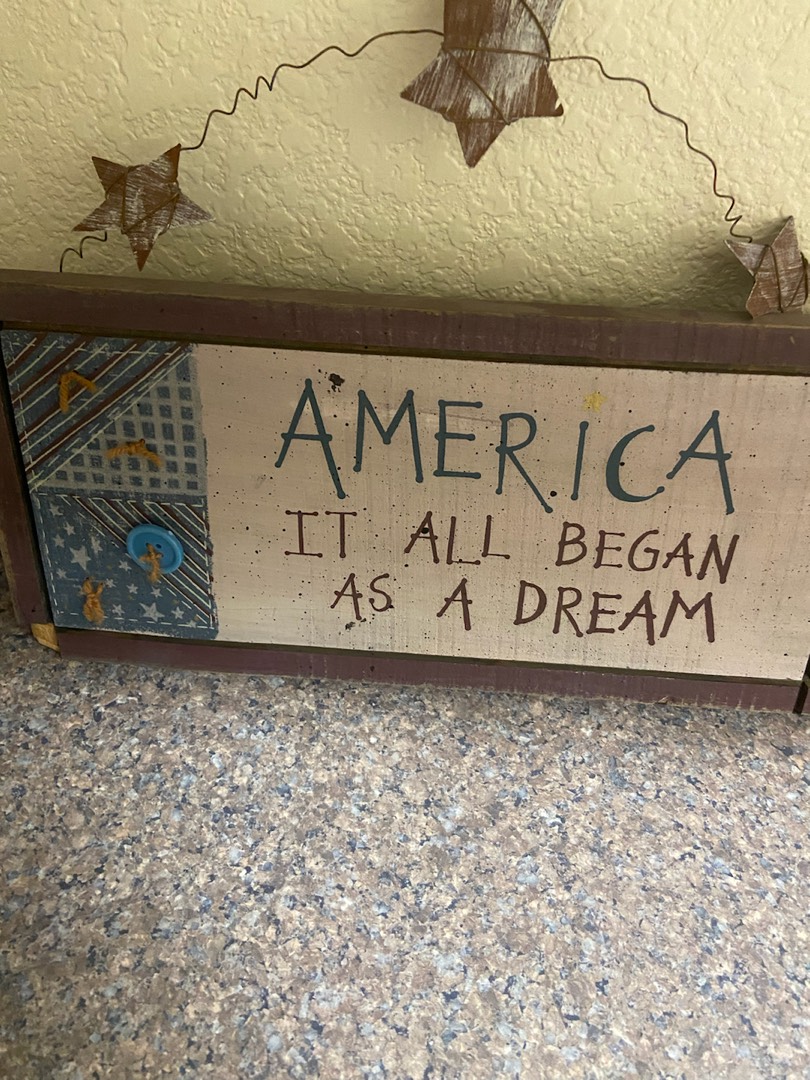 AMERICA
IT ALL BEGAN
AS A DREAM